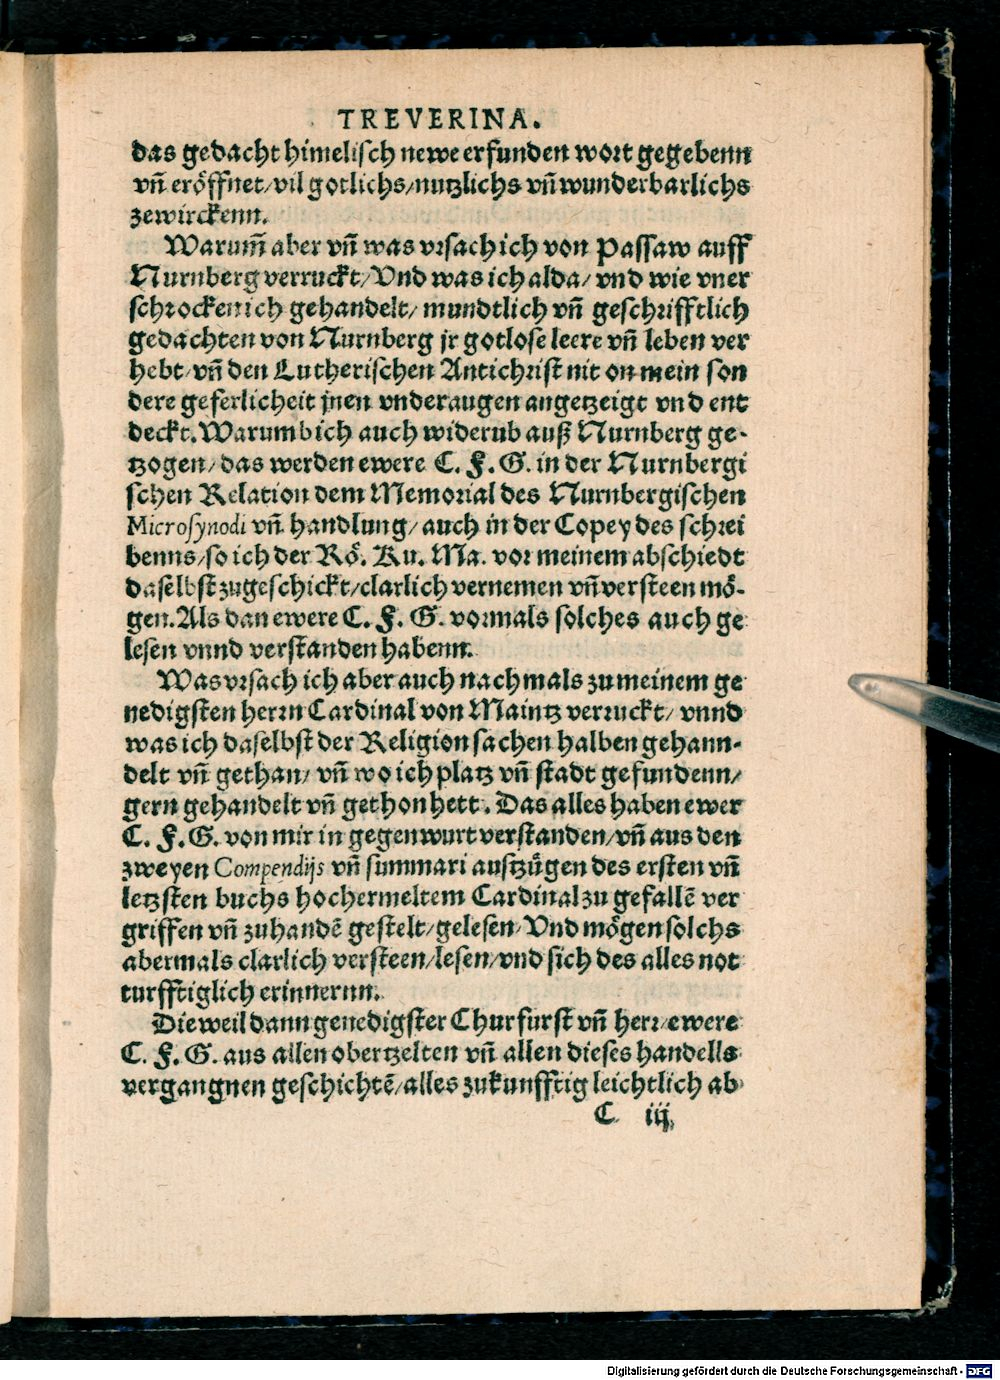 TREVERINA.
das gedacht himelisch newe erfunden wort gegebenn
vñ eröffnet/vil gotlichs/nutzlichs vñ wunderbarlichs
zewirckenn.
Warum̃ aber vñ was vrsach ich von Passaw auff
Nurnberg verruckt/Vnd was ich alda/vnd wie vner
schrocken ich gehandelt/mundtlich vñ geschrifftlich
gedachten von Nurnberg jr gotlose leere vñ leben ver
hebt/vñ den Lutherischen Antichrist nit on mein son
dere geferlicheit jnen vnderaugen angetzeigt vnd ent
deckt. Warumb ich auch widerub auß Nurnberg ge-
tzogen/das werden ewere C. F. G. in der Nurnbergi
schen Relation dem Memorial des Nurnbergischen
Microsynodi vñ handlung/auch in der Copey des schrei
benns/so ich der Rö. Ku. Ma. vor meinem abschiedt
daselbst zugeschickt/clarlich vernemen vñ versteen mö-
gen. Als dan ewere C. F. G. vormals solches auch ge
lesen vnnd verstanden habenn.
Was vrsach ich aber auch nachmals zu meinem ge
nedigsten herrn Cardinal von Maintz verruckt/vnnd
was ich daselbst der Religion sachen halben gehann-
delt vñ gethan/vñ wo ich platz vñ stadt gefundenn/
gern gehandelt vñ gethon hett. Das alles haben ewer
C. F. G. von mir in gegenwurt verstanden/vñ aus den
zweyen Compendijs vñ summari austzügen des ersten vñ
letzsten buchs hochermeltem Cardinal zu gefallē ver
griffen vñ zuhandē gestelt/gelesen/Vnd mögen solchs
abermals clarlich versteen/lesen/vnd sich des alles not
turfftiglich erinnernn.
Die weil dann genedigster Churfurst vñ herr/ewere
C. F. G. aus allen obertzelten vñ allen dieses handells
vergangnen geschichtē/alles zukunfftig leichtlich ab
C iij
Digitalisierung gefördert durch die Deutsche Forschungsgemeinschaft - DFG